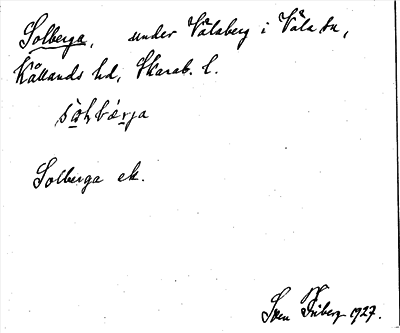 Solberga, under Vålaberg i Våla sn,
Kållands hd, Skarab. l.
Solberga ek.
Sven Friberg 1927.